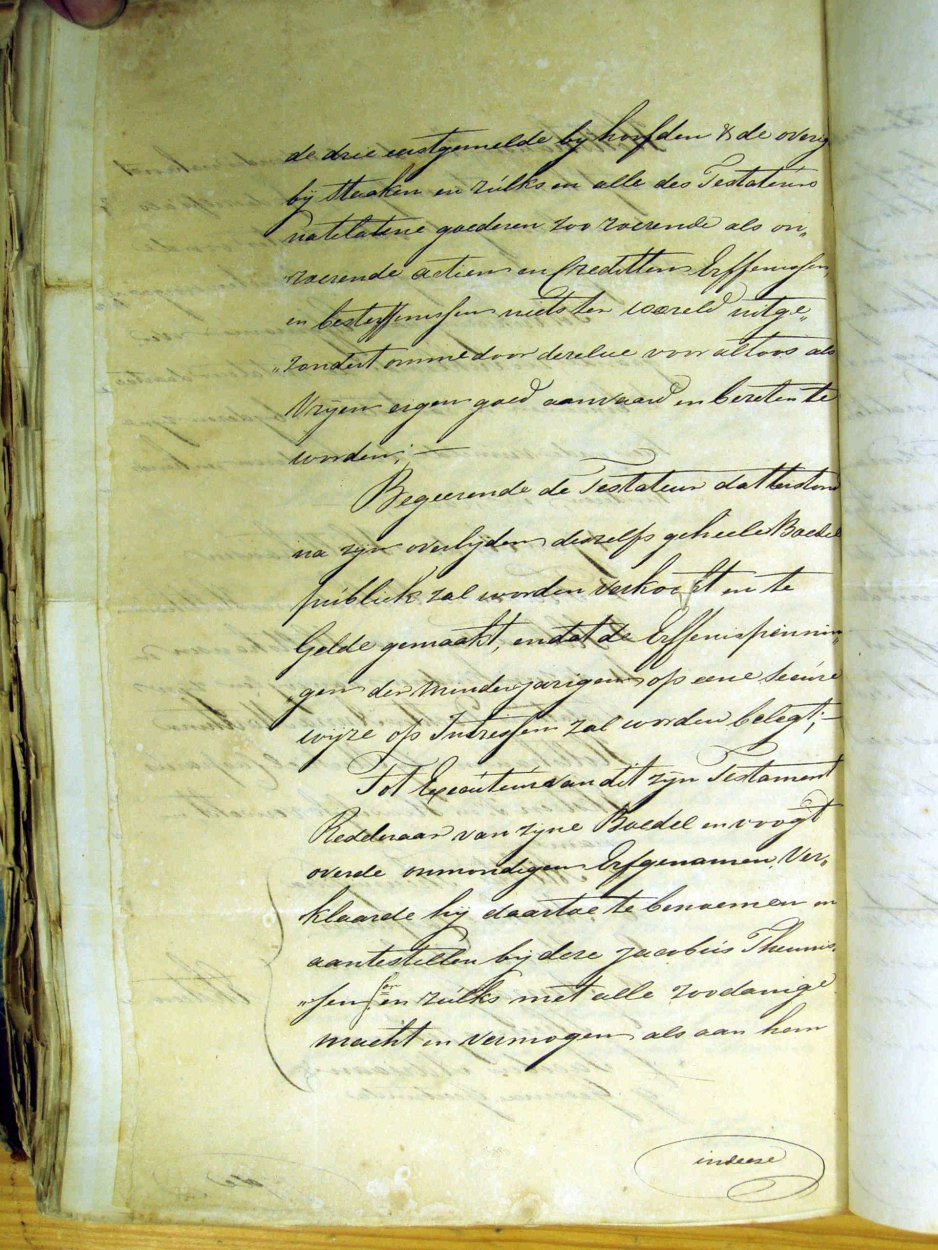 de drie eerstgemelde bij hoofden & de overig
bij Staaken en zulks en alle des Testateurs
natelatene goederen zoo roerende als on„
„roerende actien en Creditten Erffenissen
en besterffenissen niets ter wæreld uitge„
„zondert omme door dezelve voor altoos als
Vrijen eigen goed aanvaard en bezeten te
worden;—
Begeerende de Testateur dat terstond
na zijn overlijden deszelfs geheele Boedel
publiek zal worden verkogt en te
Gelde gemaakt, en dat de Erffenispennin„
gen der Minderjarigen op eene secure
wyze op Intressen zal worden belegt;—
Tot Executeur van dit zijn Testament
Redderaar van zijne Boedel en voogt
over de onmondigen Erfgenamen Ver„
klaarde hij daartoe te benoemen en
aantestellen bij deze Jacobus Theunis
„sen sen:or en zulks met alle zoodanige
macht en vermogen als aan hem
indeese